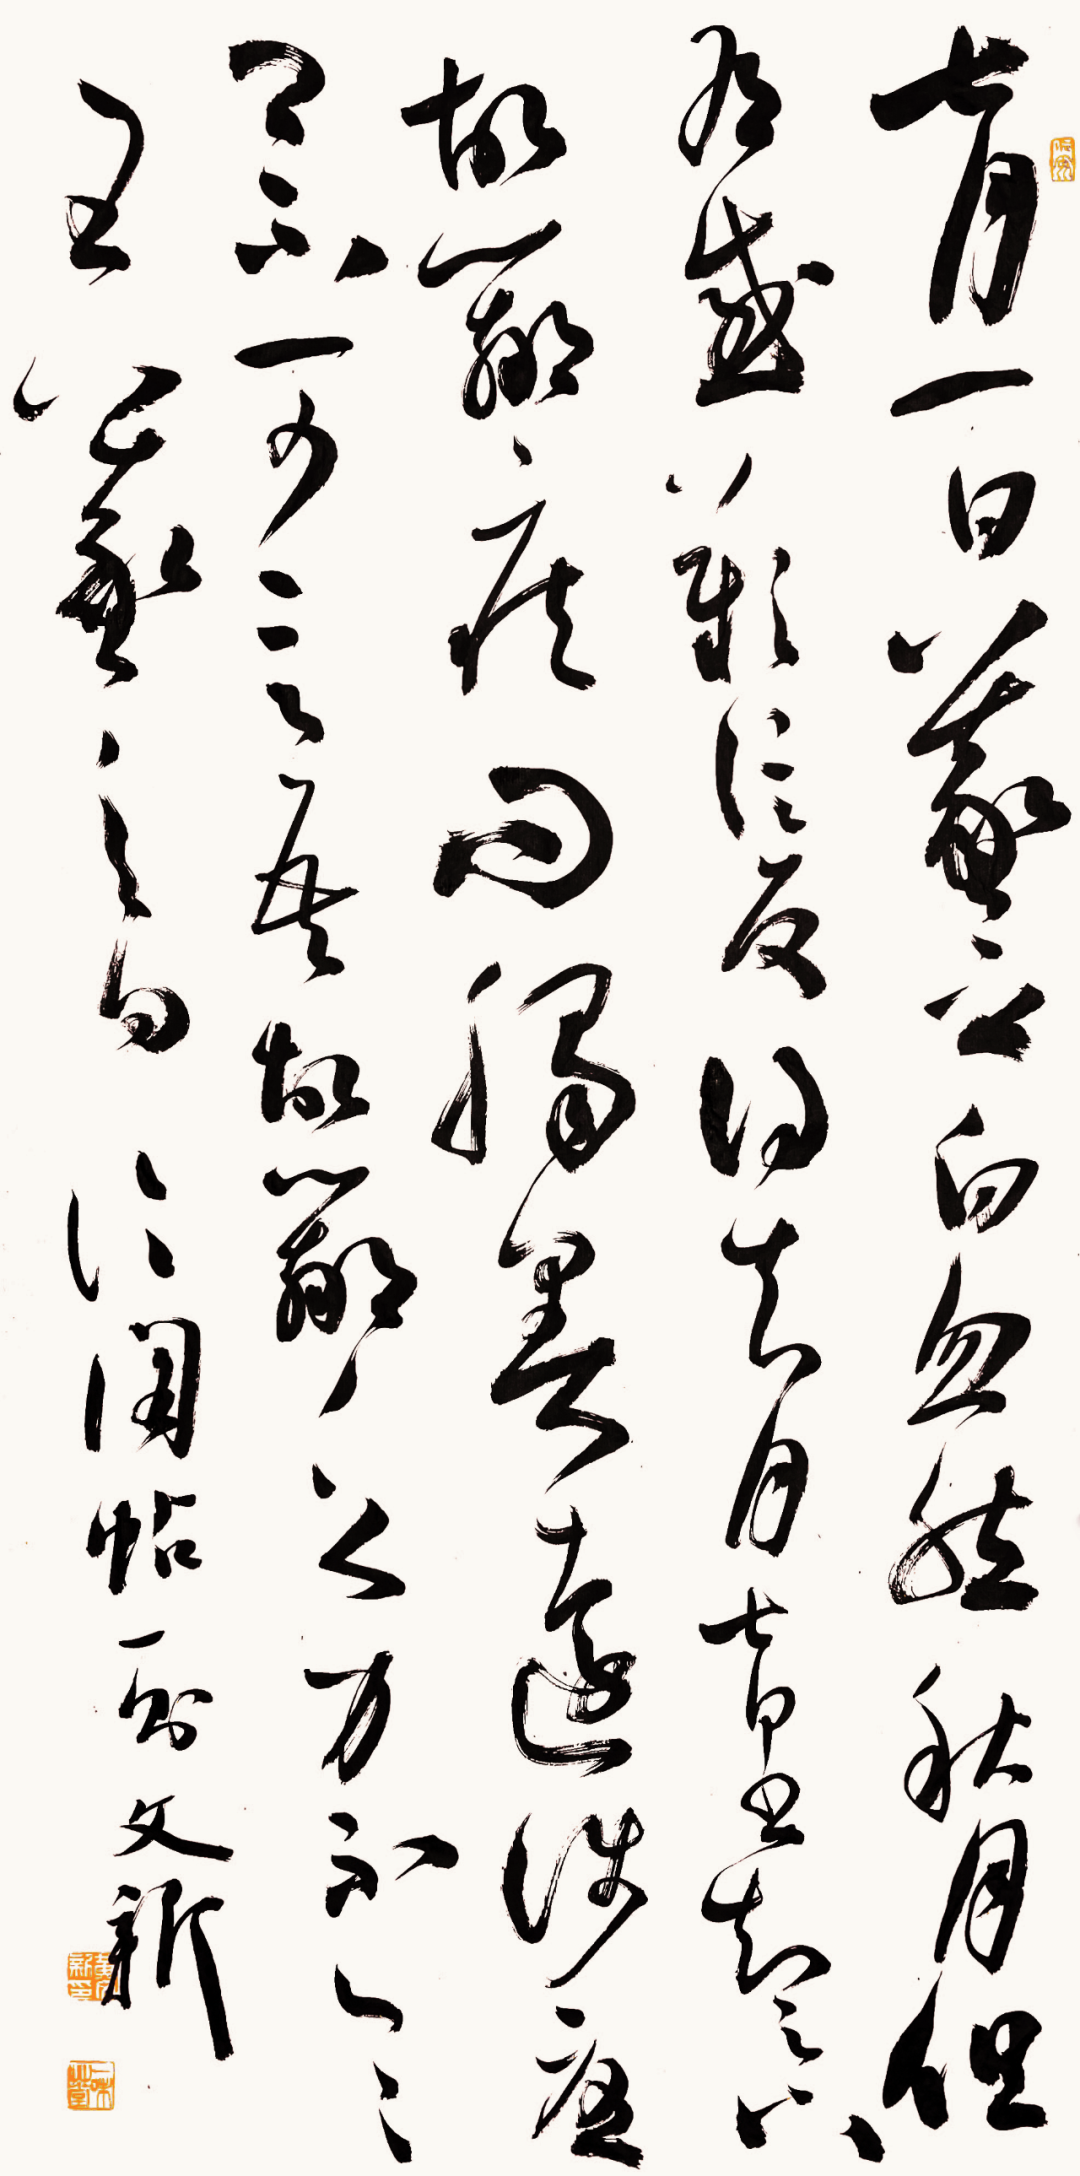 七月一日羲之白忽然秋月但
有感歎信反得去月七日書知足下
故羸疾問觸暑遠涉憂
卿不可言吾故羸乏力不一一
王羲之白 临阁帖一则 文新